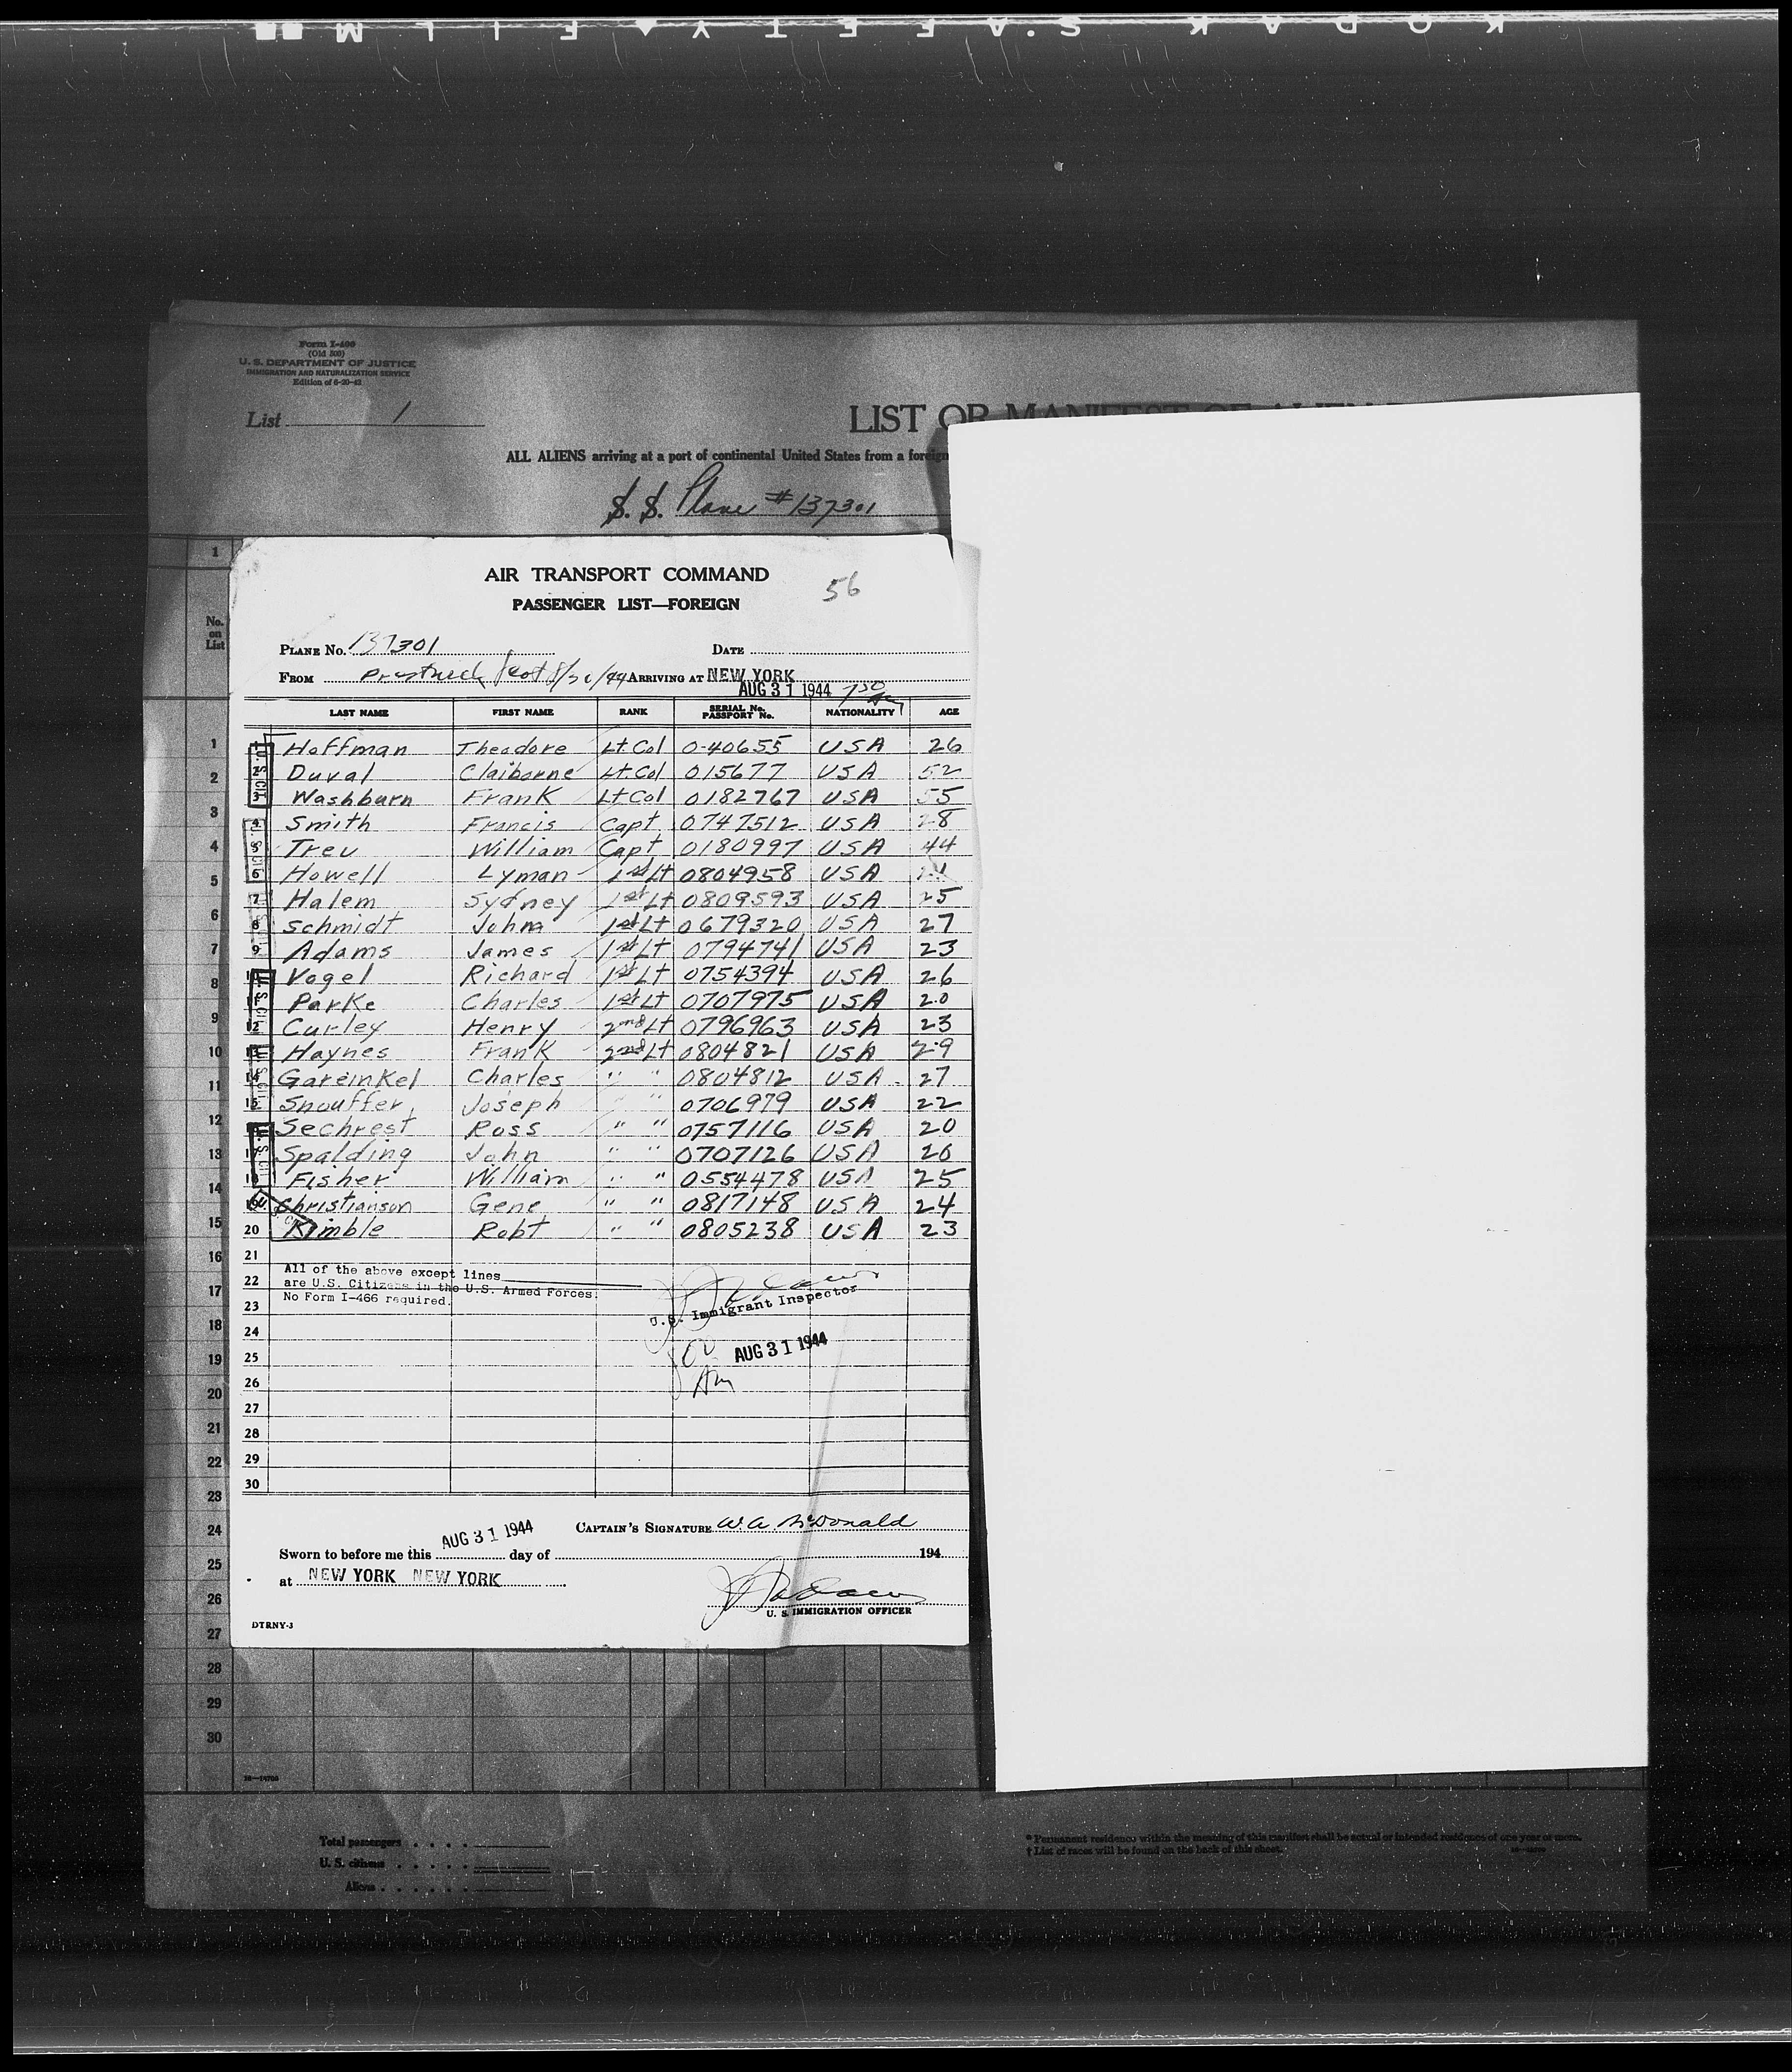 KODAK SAFETY FILM
Form I-400
(Old 500)
U. S. DEPARTMENT OF JUSTICE
IMMIGRATION AND NATURALIZATION SERVICE
Edition of 6-20-42
List 1
LIST OR MANIFEST OF ALIEN
ALL ALIENS arriving at a port of continental United States from a foreign
S. S. Plane #137301
AIR TRANSPORT COMMAND 56
PASSENGER LIST—FOREIGN
No. on List
PLANE No. 137301 DATE
FROM Scot ARRIVING AT NEW YORK
AUG 31 1944
LAST NAME FIRST NAME RANK SERIAL No. PASSPORT No. NATIONALITY AGE
1 Hoffman Theodore Lt Col 0-40655 USA 26
2 Duval Claiborne Lt. Col 015677 USA 52
3 Washburn Frank Lt Col 0182767 USA 55
4 Smith Francis Capt 0747512 USA 28
5 Treu William Capt 0180997 USA 44
6 Howell Lyman 1st Lt 0804958 USA
7 Halem Sydney 1st Lt 0809593 USA 25
8 Schmidt John 1st Lt 0679320 USA 27
9 Adams James 1st Lt 0794741 USA 23
10 Vogel Richard 1st Lt 0754394 USA 26
11 Parke Charles 1st Lt 0707975 USA 20
12 Curley Henry 2nd Lt 0796963 USA 23
13 Haynes Frank 2nd Lt 0804821 USA 29
14 Gareinkel Charles " " 0804812 USA 27
15 Snouffer Joseph " " 0706979 USA 22
16 Sechrest Ross " " 0757116 USA 20
17 Spalding John " " 0707126 USA 20
18 Fisher William " " 0554478 USA 25
19 Christianson Gene " " 0817148 USA 24
20 Kimble Robt " " 0805238 USA 23
21
22 All of the above except lines
are U.S. Citizens in the U.S. Armed Forces.
23 No Form I-466 required.
U.S. Immigrant Inspector
24
25 AUG 31 1944
26 AM
27
28
29
30
CAPTAIN'S SIGNATURE W. A. McDonald
AUG 31 1944
Sworn to before me this day of 194
at NEW YORK NEW YORK
U. S. IMMIGRATION OFFICER
DTRNY-3
1
1
2
3
4
5
6
7
8
9
10
11
12
13
14
15
16
17
18
19
20
21
22
23
24
25
26
27
28
29
30
Total passengers
U. S. citizens
Aliens
* Permanent residence within the meaning of this manifest shall be actual or intended residence of one year or more.
† List of races will be found on the back of this sheet.